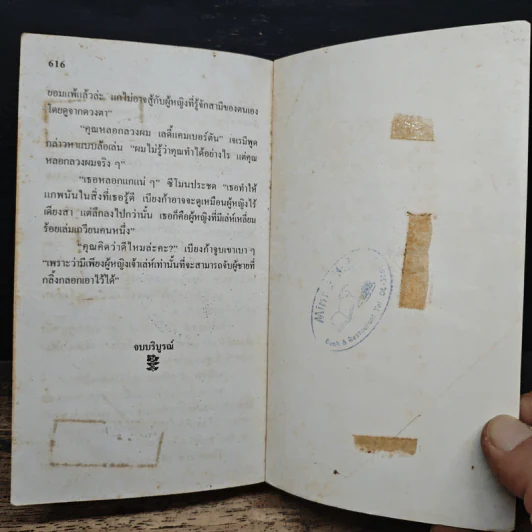 616
ยอมแพ้แล้วล่ะ แกไม่อาจสู้กับผู้หญิงที่รู้จักสามีของตนเอง
โดยดูจากดวงตา”
“คุณหลอกลวงผม เลดี้แคมเบอร์ดัน” เจเรมีพูด
กล่าวหาแบบล้อเล่น “ผมไม่รู้ว่าคุณทำได้อย่างไร แต่คุณ
หลอกลวงผมจริง ๆ”
“เธอหลอกแกแน่ ๆ” ซีโมนประชด “เธอทำให้
แกพนันในสิ่งที่เธอรู้ดี เบียงก้าอาจจะดูเหมือนผู้หญิงไร้
เดียงสา แต่ลึกลงไปกว่านั้น เธอก็คือผู้หญิงที่มีเล่ห์เหลี่ยม
ร้อยเล่มเกวียนคนหนึ่ง”
“คุณคิดว่าดีไหมล่ะคะ?” เบียงก้าจูบเขาเบา ๆ
“เพราะว่ามีเพียงผู้หญิงเจ้าเล่ห์เท่านั้นที่จะสามารถจับผู้ชายที่
กลิ้งกลอกเอาไว้ได้”
จบบริบูรณ์
Book & Restaurant Tel